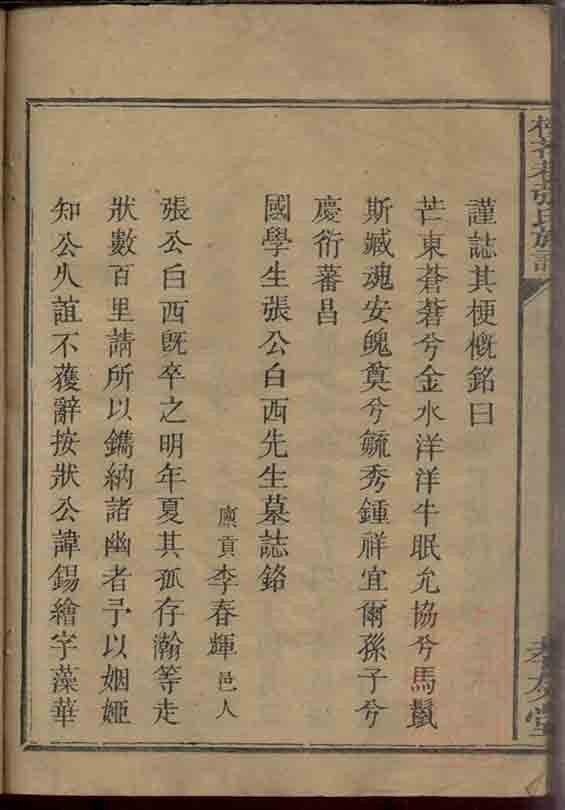 謹誌其梗慨銘曰
芒東蒼蒼兮金水洋洋牛眠允協兮馬鬣
斯臧魂安魄奠兮毓秀鍾祥宜爾孫子兮
慶衍蕃昌
國學生張公白西先生墓誌銘
廩貢李春輝邑人
張公白西既卒之明年夏其孤存瀚等走
狀數百里請所以鐫納諸幽者予以姻婭
知公久誼不獲辭按狀公諱錫繪字藻華
張氏族譜
孝友堂